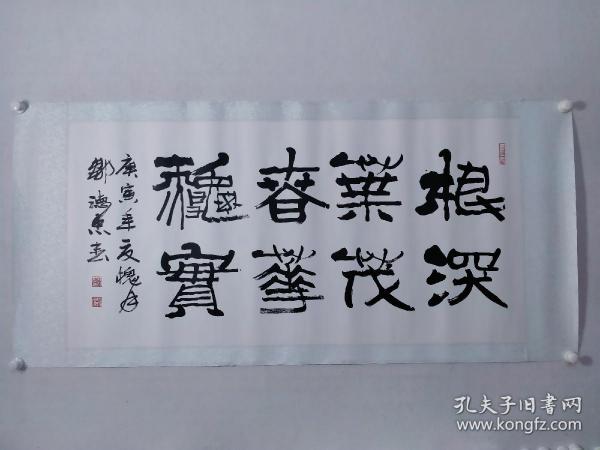 根深
葉茂
春華
穐實
庚寅年夏槐月
鄒德忠書
孔夫子旧书网
www.kongfz.com